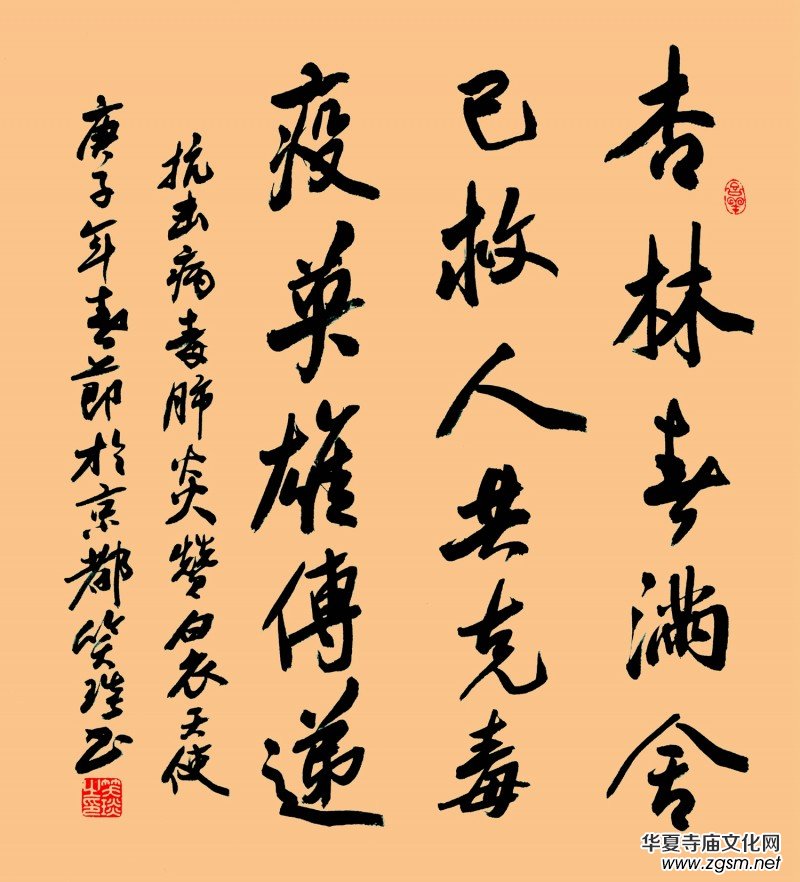 杏林春满舍
己救人共克毒
疫英雄傳递
抗击病毒肺炎赞白衣天使
庚子年春節於京都笑琰书
笑琰之印
华夏寺庙文化网
www.zgsm.net